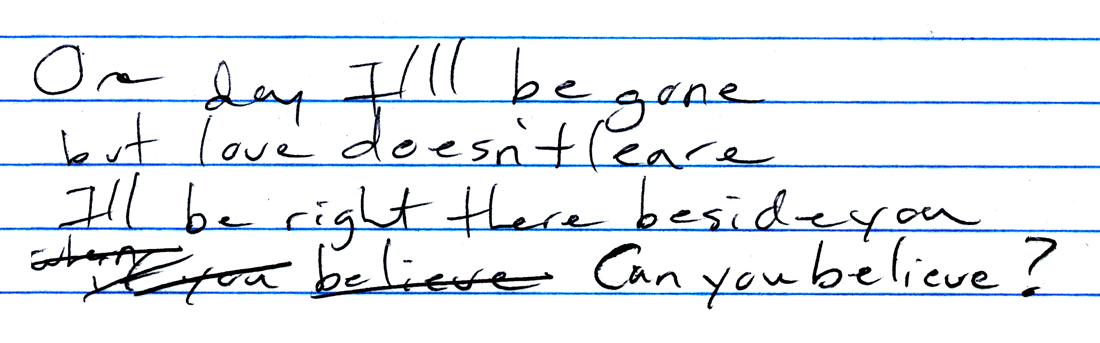 One day I'll be gone
but love doesn't leave
I'll be right there beside you
when if you believe Can you believe?